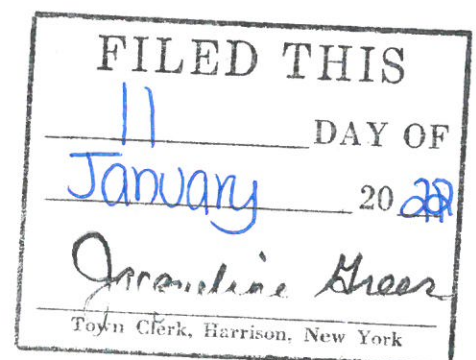 FILED THIS
11 DAY OF
January 20
Jacqueline Greer
Town Clerk, Harrison, New York